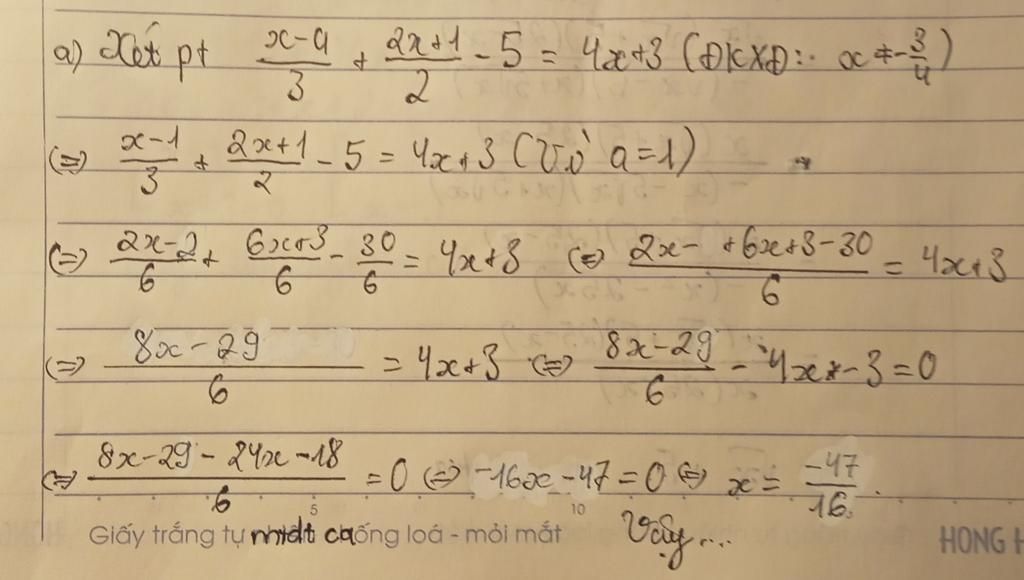 a) Xét pt (x-a)/3 + (2x+1)/2 - 5 = 4x+3 (ĐKXĐ: x ≠ -3/4)
(=) (x-1)/3 + (2x+1)/2 - 5 = 4x+3 (Với a=1)
(=) (2x-2)/6 + (6x+3)/6 - 30/6 = 4x+3 (=) (2x- +6x+3-30)/6 = 4x+3
(=) (8x-29)/6 = 4x+3 (=) (8x-29)/6 - 4x - 3 = 0
(=) (8x-29-24x-18)/6 = 0 (=) -16x-47=0 (=) x = -47/16.
5 10
Giấy trắng tự chống loá - mỏi mắt Vậy... HONG H